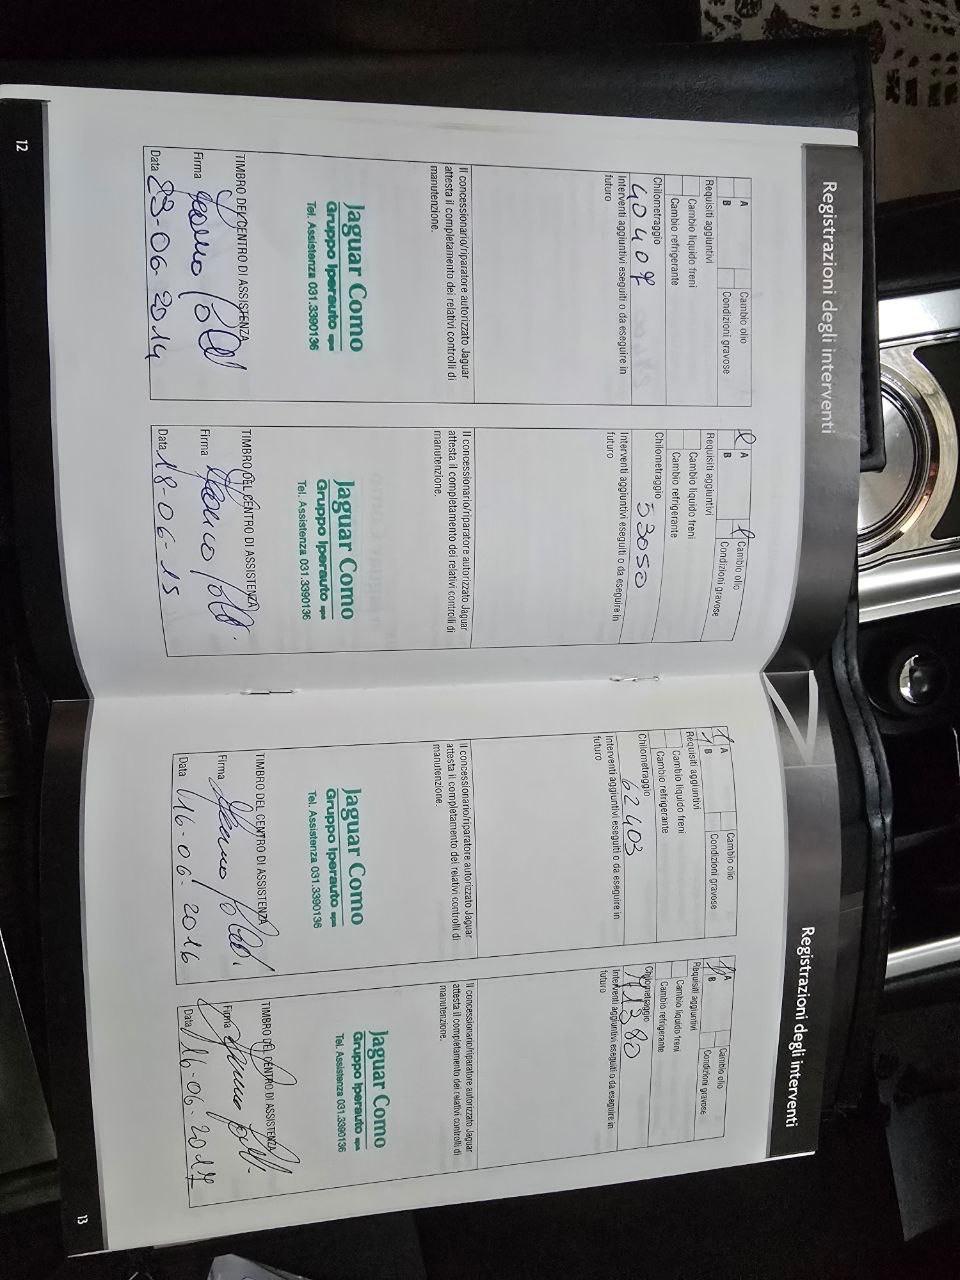 Registrazioni degli interventi
A
B
Cambio olio
Condizioni gravose
Requisiti aggiuntivi
Cambio liquido freni
Cambio refrigerante
Chilometraggio
40407
Interventi aggiuntivi eseguiti o da eseguire in
futuro
Il concessionario/riparatore autorizzato Jaguar
attesta il completamento dei relativi controlli di
manutenzione.
Jaguar Como
Gruppo Iperauto spa
Tel. Assistenza 031.3390136
TIMBRO DEL CENTRO DI ASSISTENZA
Firma
Data 23-06-2014
A
B
Cambio olio
Condizioni gravose
Requisiti aggiuntivi
Cambio liquido freni
Cambio refrigerante
Chilometraggio
53050
Interventi aggiuntivi eseguiti o da eseguire in
futuro
Il concessionario/riparatore autorizzato Jaguar
attesta il completamento dei relativi controlli di
manutenzione.
Jaguar Como
Gruppo Iperauto spa
Tel. Assistenza 031.3390136
TIMBRO DEL CENTRO DI ASSISTENZA
Firma
Data 18-06-15
12
Registrazioni degli interventi
A
B
Cambio olio
Condizioni gravose
Requisiti aggiuntivi
Cambio liquido freni
Cambio refrigerante
Chilometraggio
62403
Interventi aggiuntivi eseguiti o da eseguire in
futuro
Il concessionario/riparatore autorizzato Jaguar
attesta il completamento dei relativi controlli di
manutenzione.
Jaguar Como
Gruppo Iperauto spa
Tel. Assistenza 031.3390136
TIMBRO DEL CENTRO DI ASSISTENZA
Firma
Data 16-06-2016
A
B
Cambio olio
Condizioni gravose
Requisiti aggiuntivi
Cambio liquido freni
Cambio refrigerante
Chilometraggio
71380
Interventi aggiuntivi eseguiti o da eseguire in
futuro
Il concessionario/riparatore autorizzato Jaguar
attesta il completamento dei relativi controlli di
manutenzione.
Jaguar Como
Gruppo Iperauto spa
Tel. Assistenza 031.3390136
TIMBRO DEL CENTRO DI ASSISTENZA
Firma
Data 16-06-2017
13